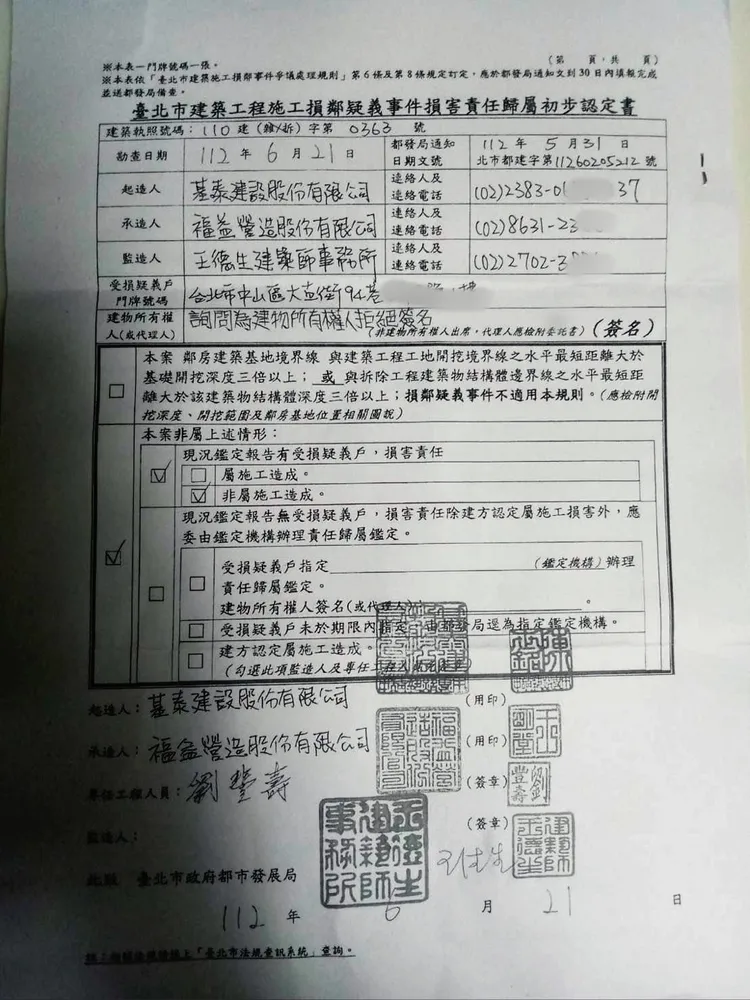 (第　頁，共　頁)
※本表一門牌號碼一張。
※本表依「臺北市建築施工損鄰事件爭議處理規則」第6條及第8條規定訂定，應於都發局通知文到30日內填報完成
並送都發局備查。
臺北市建築工程施工損鄰疑義事件損害責任歸屬初步認定書
建築執照號碼：110 建(雜/拆)字第 0363 號
勘查日期 112 年 6 月 21 日 都發局通知日期文號 112 年 5 月 31 日 北市都建字第11260205212號
起造人 基泰建設股份有限公司 連絡人及連絡電話 (02)2383-0 37
承造人 福益營造股份有限公司 連絡人及連絡電話 (02)8631-23
監造人 王德生建築師事務所 連絡人及連絡電話 (02)2702-3
受損疑義戶門牌號碼 台北市中山區大直街94巷
建物所有權人(或代理人) 詢問為建物所有權人拒絕簽名 (非建物所有權人出席，代理人應檢附委託書) (簽名)
□ 本案 鄰房建築基地境界線 與建築工程工地開挖境界線之水平最短距離大於
基礎開挖深度三倍以上；或與拆除工程建築物結構體邊界線之水平最短距
離大於該建築物結構體深度三倍以上；損鄰疑義事件不適用本規則。(應檢附開
挖深度、開挖範圍及鄰房基地位置相關圖說)
☑ 本案非屬上述情形：
☑ 現況鑑定報告有受損疑義戶，損害責任
□ 屬施工造成。
☑ 非屬施工造成。
□ 現況鑑定報告無受損疑義戶，損害責任除建方認定屬施工損害外，應
委由鑑定機構辦理責任歸屬鑑定。
□ 受損疑義戶指定 (鑑定機構)辦理
責任歸屬鑑定。
建物所有權人簽名(或代理人) 。
□ 受損疑義戶未於期限內指定，由都發局逕為指定鑑定機構。
□ 建方認定屬施工造成。
(勾選此項監造人及專任工程人員
起造人：基泰建設股份有限公司 (用印)
承造人：福益營造股份有限公司 (用印)
專任工程人員：劉豐壽 (簽章) 劉豐壽
監造人： 王德生建築師事務所 王德生 (簽章) 建築師王德生
此致 臺北市政府都市發展局
112 年 6 月 21 日
上「臺北市法規查詢系統」查詢。